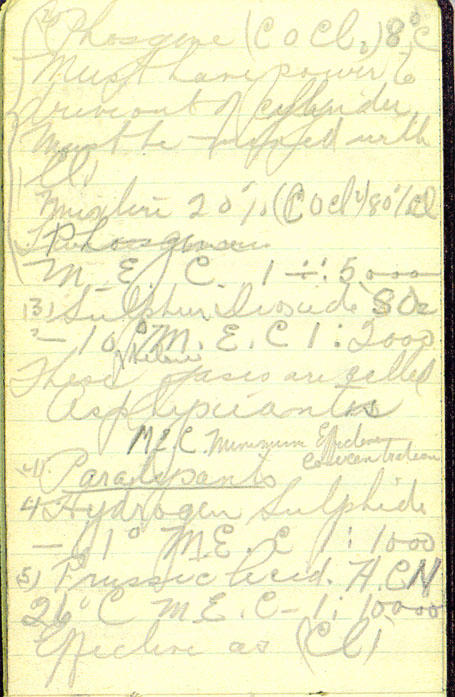 (2) Phosgene (C O Cl2) 8°C
Must have power to
drive out of cylinder
Must be mixed with
Cl)
Mixture 20% (C O Cl2) 80% Cl
Phosgene
M. E. C. 1 ÷: 5000
(3) Sulphur Dioxide SO2
- 10° M. E. C 1 : 2000
These gases are called
Asphyxiants
M E C. Minimum Effective
Concentration
Paralysants
4 Hydrogen Sulphide
- 61° M. E. C 1 : 1000
5) Prussic Acid. H. CN
26° C M. E. C - 1 : 10000
Effective as (Cl)